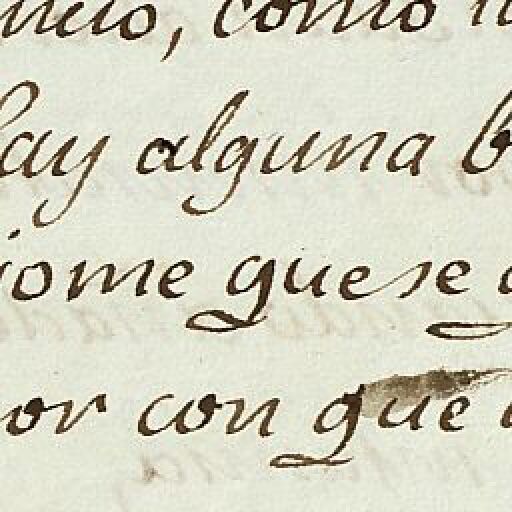 ncio, como
hay alguna b
iome que se
or con que